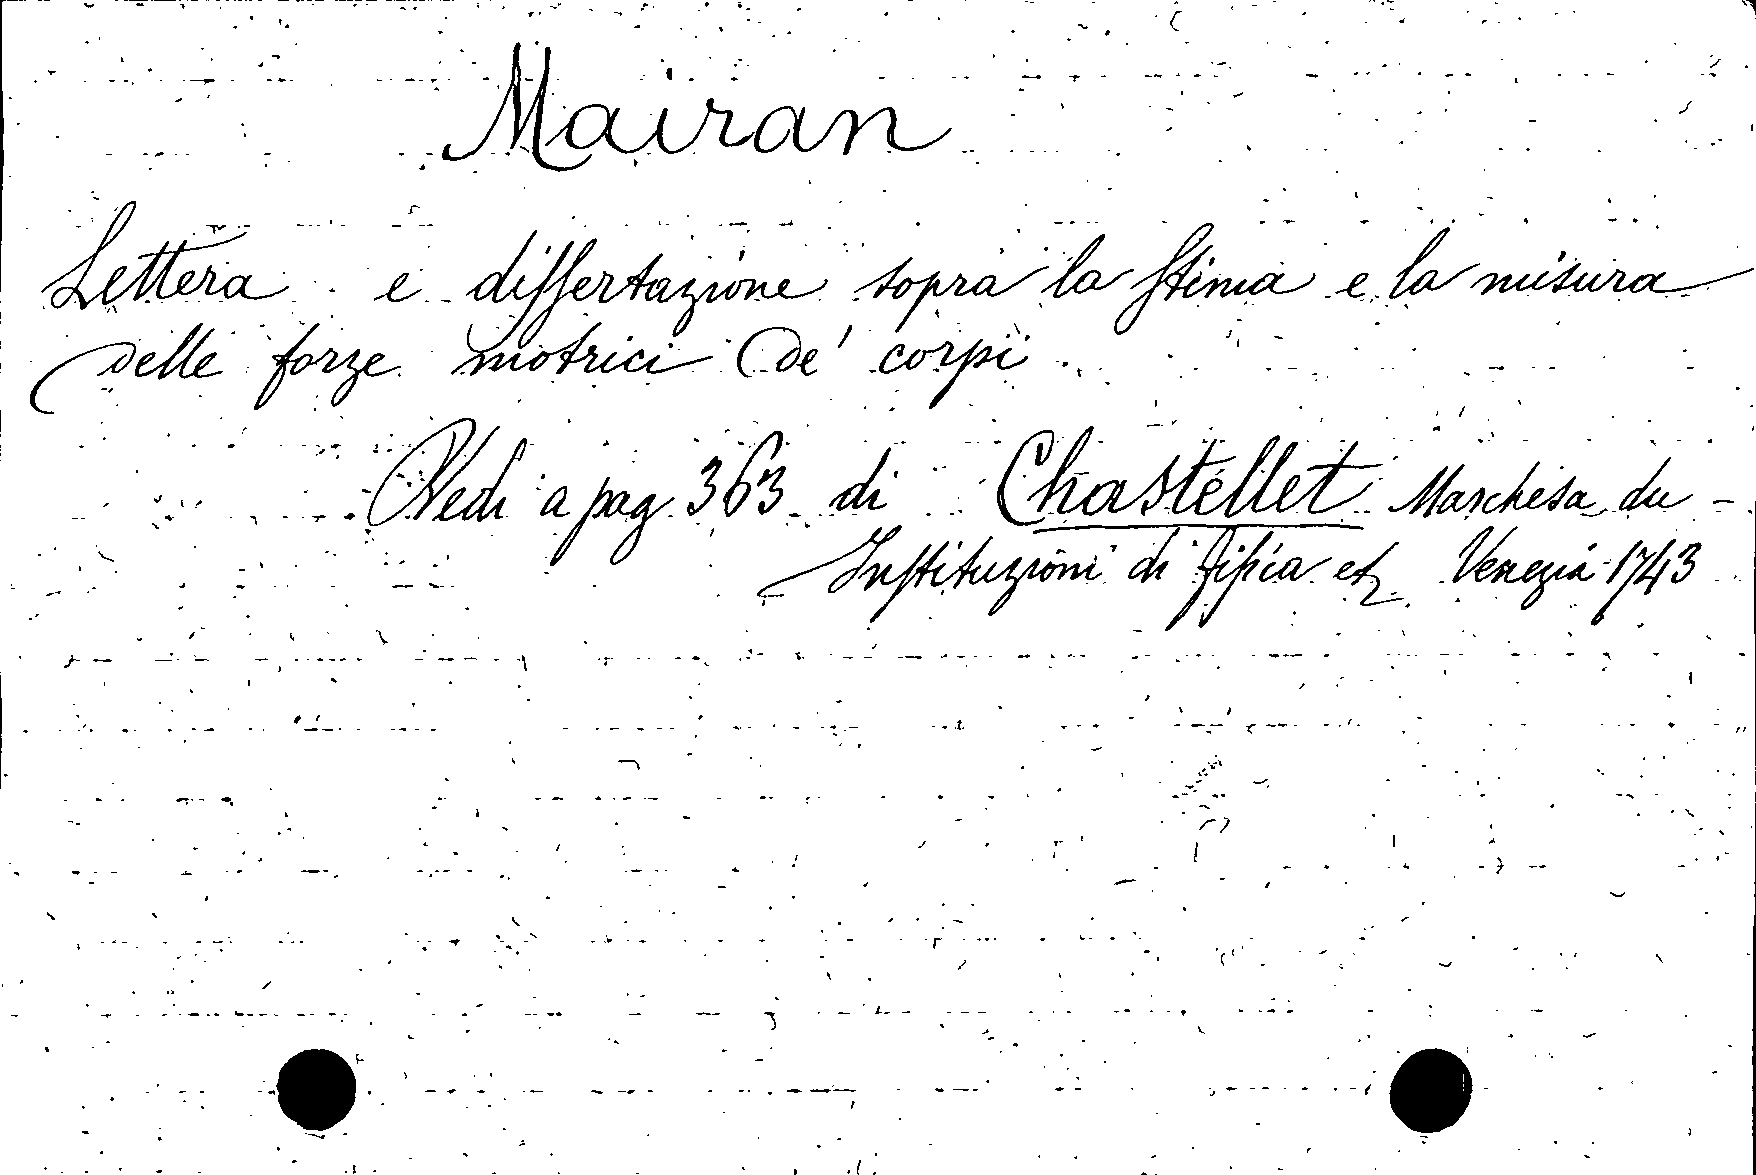 Mairan
Lettera e dissertazione sopra la stima e la misura
delle forze motrici de' corpi
Vedi a pag 363 di Chastellet Marchesa du -
Instituzioni di fisica etc Venezia 1743